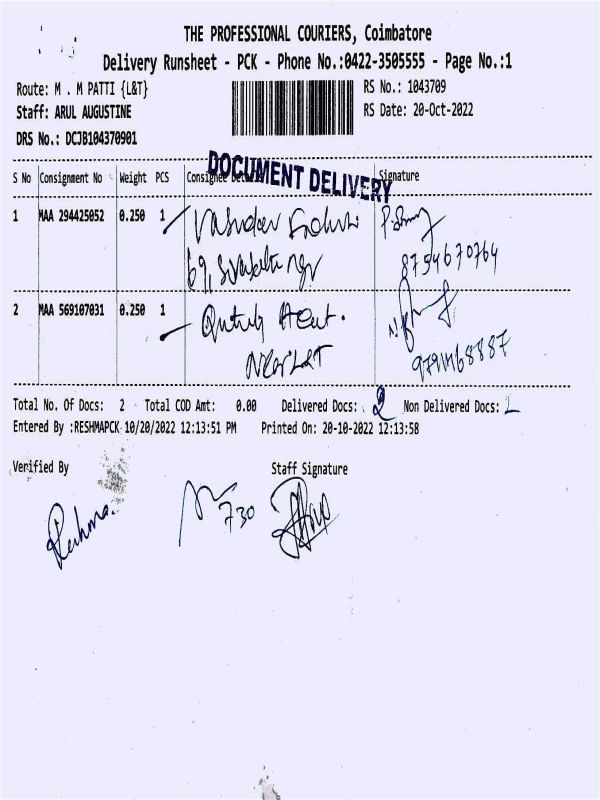 THE PROFESSIONAL COURIERS, Coimbatore
Delivery Runsheet - PCK - Phone No.:0422-3505555 - Page No.:1
Route: M . M PATTI {L&T} RS No.: 1043709
Staff: ARUL AUGUSTINE RS Date: 20-Oct-2022
DRS No.: DCJB104370901
DOCUMENT DELIVERY
S No Consignment No Weight PCS Consignee Details Signature
1 MAA 294425052 0.250 1
69,
8754670764
2 MAA 569107031 0.250 1
Total No. Of Docs: 2 Total COD Amt: 0.00 Delivered Docs: 2 Non Delivered Docs:
Entered By :RESHMAPCK 10/20/2022 12:13:51 PM Printed On: 20-10-2022 12:13:58
Verified By Staff Signature
730